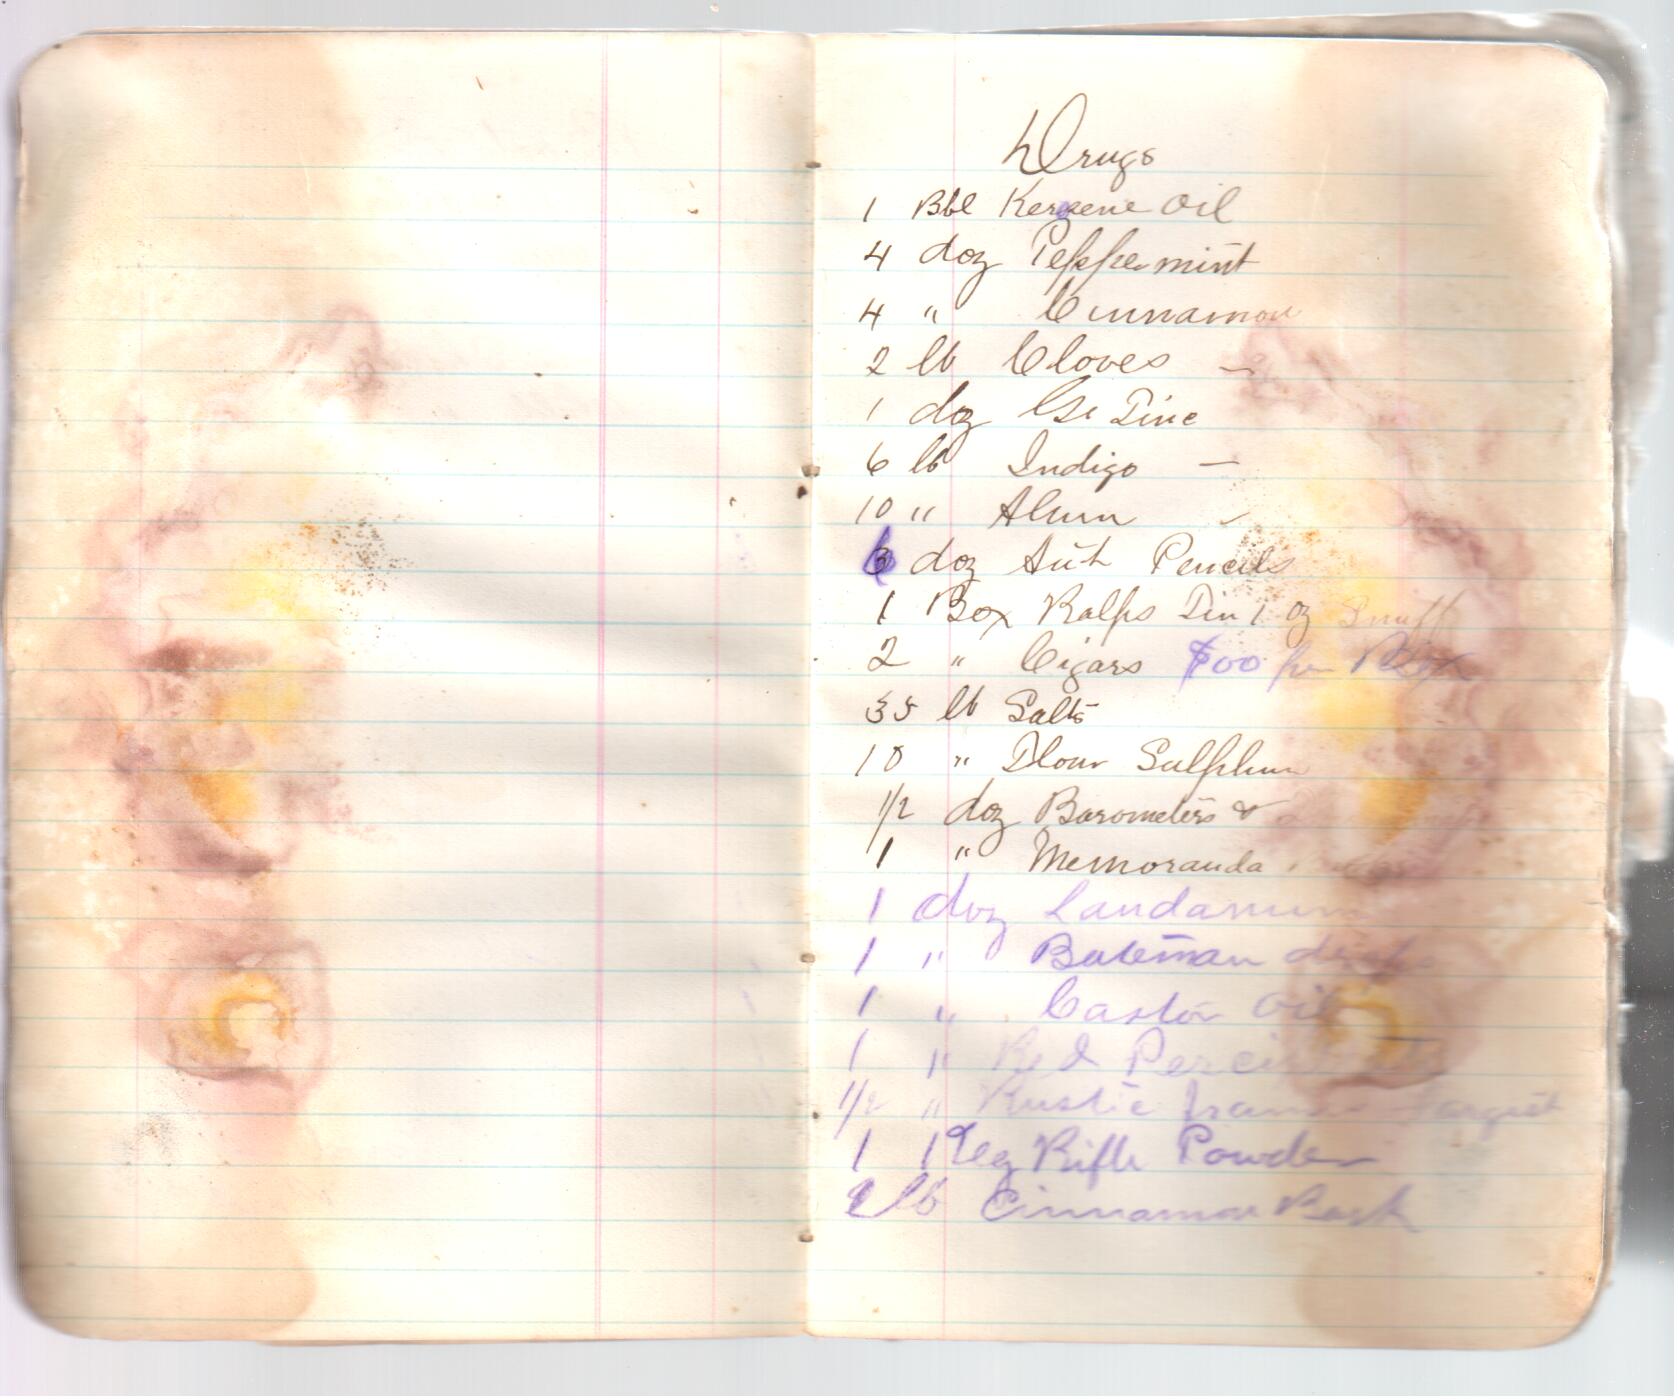 Drugs
1 Bbl Kerzene Oil
4 doz Peppermint
4 " Cinnamon
2 lb Cloves —
1 doz
6 lb Indigo —
10 " Alum
doz Pencils
1 Box Ralps Tin 1 oz Snuff
2 " Cigars $00 per Box
35 lb Salts
10 " Flour Sulphur
1/2 doz Barometers &
1 " Memoranda
1 doz Laudanum
1 " Bateman drops
1 " Castor Oil
1 " Red
1/2 " Rustic frames
1 Keg Rifle Powder
2 lb Cinnamon Bark